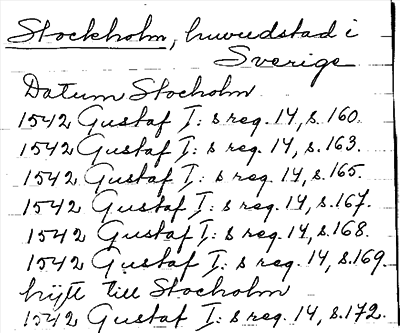 Stockholm, huvudstad i
Sverige
Datum Stocholm
1542 Gustaf I:s reg. 14, s. 160.
1542 Gustaf I:s reg. 14, s. 163.
1542 Gustaf I:s reg. 14, s. 165.
1542 Gustaf I:s reg. 14, s. 167.
1542 Gustaf I:s reg. 14, s. 168.
1542 Gustaf I:s reg. 14, s. 169.
till Stocholm
1542 Gustaf I:s reg. 14, s. 172.